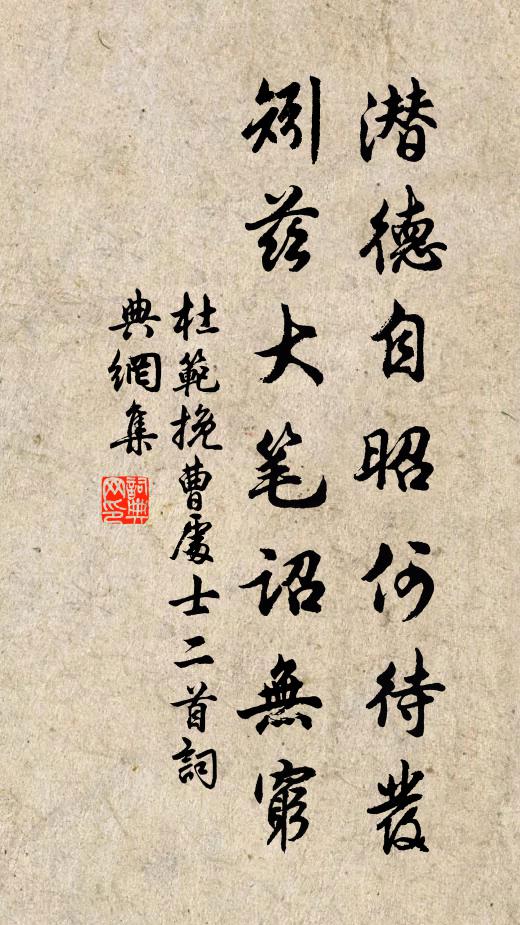 潜德自昭何待發
矧茲大笔詔無窮
杜範挽曹處士二首詞
典網集
詞典网印